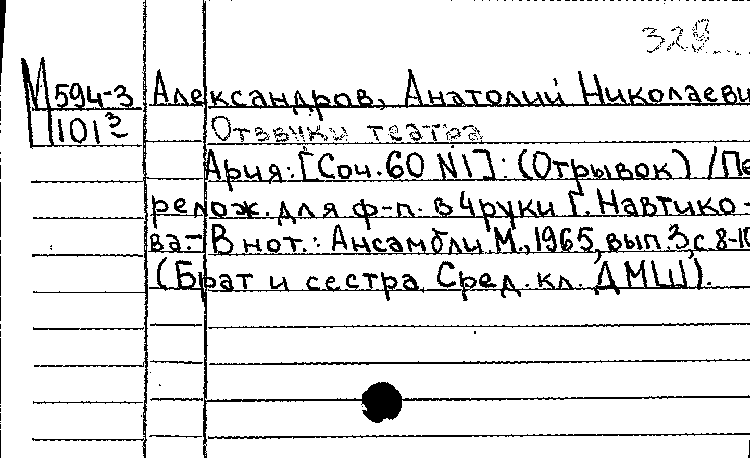 329
М 594-3 Александров, Анатолий Николаеви
П 101³ Отзвуки театра
Ария: [Соч. 60 N1]: (Отрывок) / Пе
релож. для ф-п. в 4 руки Г. Навтико-
ва.- В нот.: Ансамбли. М., 1965, вып. 3, с 8-10
(Брат и сестра. Сред. кл. ДМШ).